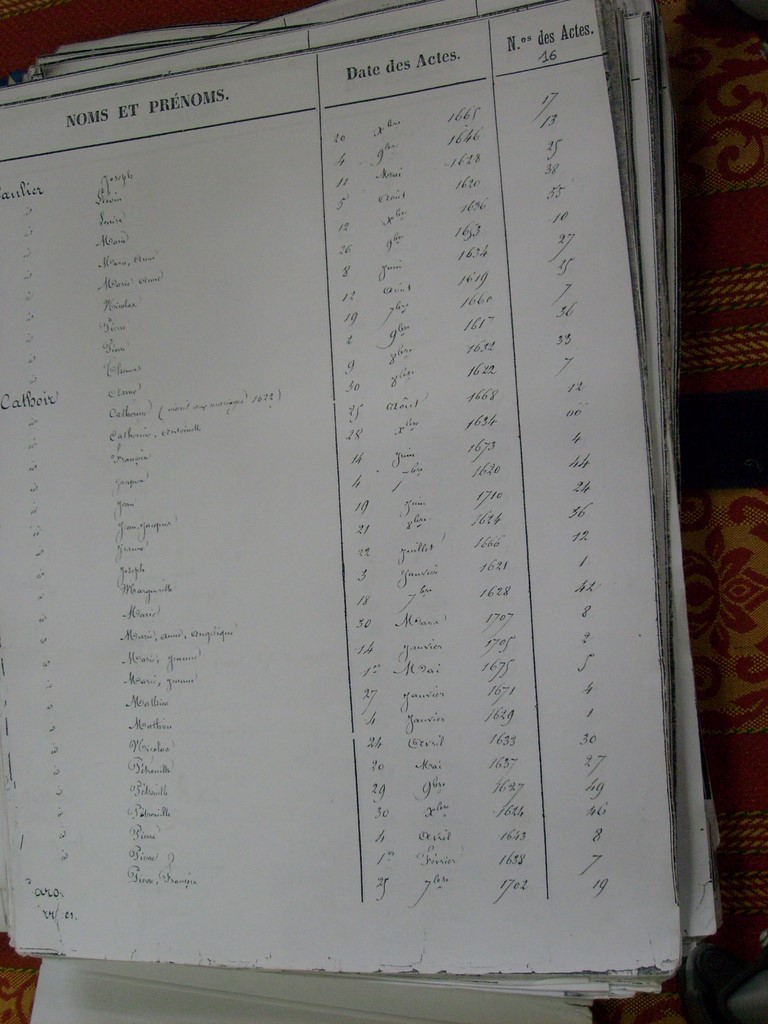 NOMS ET PRÉNOMS. Date des Actes. N.os des Actes.
16
aulier Joseph 20 Xbre 1665 17
" Simon 4 9bre 1646 13
" Louise 11 Mai 1628 25
" Marie 5 Août 1620 38
" Marie, Anne 12 Xbre 1636 55
" Marie Anne 26 9bre 1653 10
" Nicolas 8 Juin 1634 27
" Pierre 12 Août 1619 25
" Pierre 19 7bre 1660 7
" Thomas 2 9bre 1617 36
Cathoir Anne 9 8bre 1632 33
" Catherine (mort aux mariages 1622) 30 8bre 1622 7
" Catherine, Antoinette 25 Août 1668 12
" François 28 Xbre 1634
" Jacques 14 Juin 1673 4
" Jean 4 bre 1620 44
" Jean, Jacques 19 Juin 1710 24
" 21 8bre 1624 36
" Joseph 22 Juillet 1666 12
" Marguerite 3 Janvier 1621 1
" Marie 18 7bre 1628 42
" Marie, Anne, Angélique 30 Mars 1707 8
" Marie, Jeanne 14 Janvier 1705 2
" Marie, Jeanne 1er Mai 1675 5
" Mathieu 27 Janvier 1671 4
" Mathieu 4 Janvier 1629 1
" Nicolas 24 Avril 1633 30
" Pétronille 20 Mai 1637 27
" Pétronille 29 9bre 1627 49
" Pétronille 30 Xbre 1624 46
" Pierre 4 Avril 1643 8
" Pierre 1er Février 1638 7
Pierre, François 25 7bre 1702 19